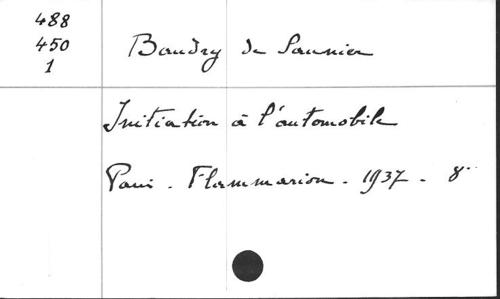 488
450
1
Baudry de Saunier
Initiation à l'automobile
Paris. Flammarion. 1937. 8°